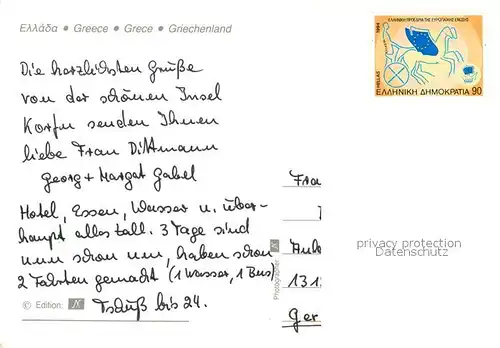 Ελλάδα • Greece • Grece • Griechenland
ΕΛΛΗΝΙΚΗ ΠΡΟΕΔΡΙΑ ΤΗΣ ΕΥΡΩΠΑΪΚΗΣ ΕΝΩΣΗΣ
1994
HELLAS
ΕΛΛΗΝΙΚΗ ΔΗΜΟΚΡΑΤΙΑ 90
Die herzlichsten Grüße
von der schönen Insel
Korfu senden Ihnen
liebe Frau Dittmann
Georg + Margot Gabel
Hotel, Essen, Wasser u. über-
haupt alles toll. 3 Tage sind
nun schon um, haben schon
2 Fahrten gemacht (1 Wasser, 1 Bus)
Tschüß bis 24.
Fra
Ger
privacy protection
Datenschutz
© Edition: N
Photographer N